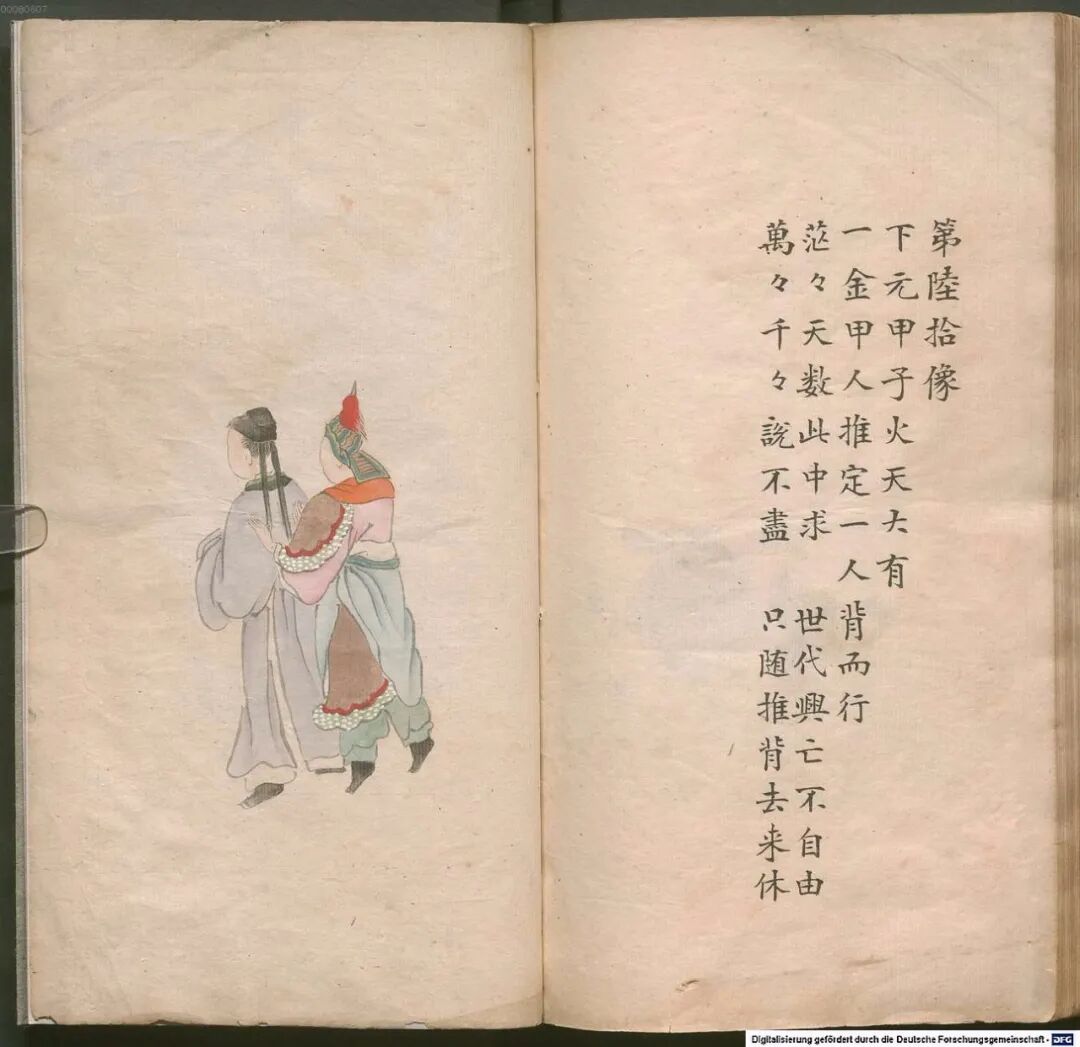 00080607
第陸拾像
下元甲子火天大有
一金甲人推定一人背而行
茫々天数此中求 世代興亡不自由
萬々千々說不盡 只随推背去来休
Digitalisierung gefördert durch die Deutsche Forschungsgemeinschaft - DFG